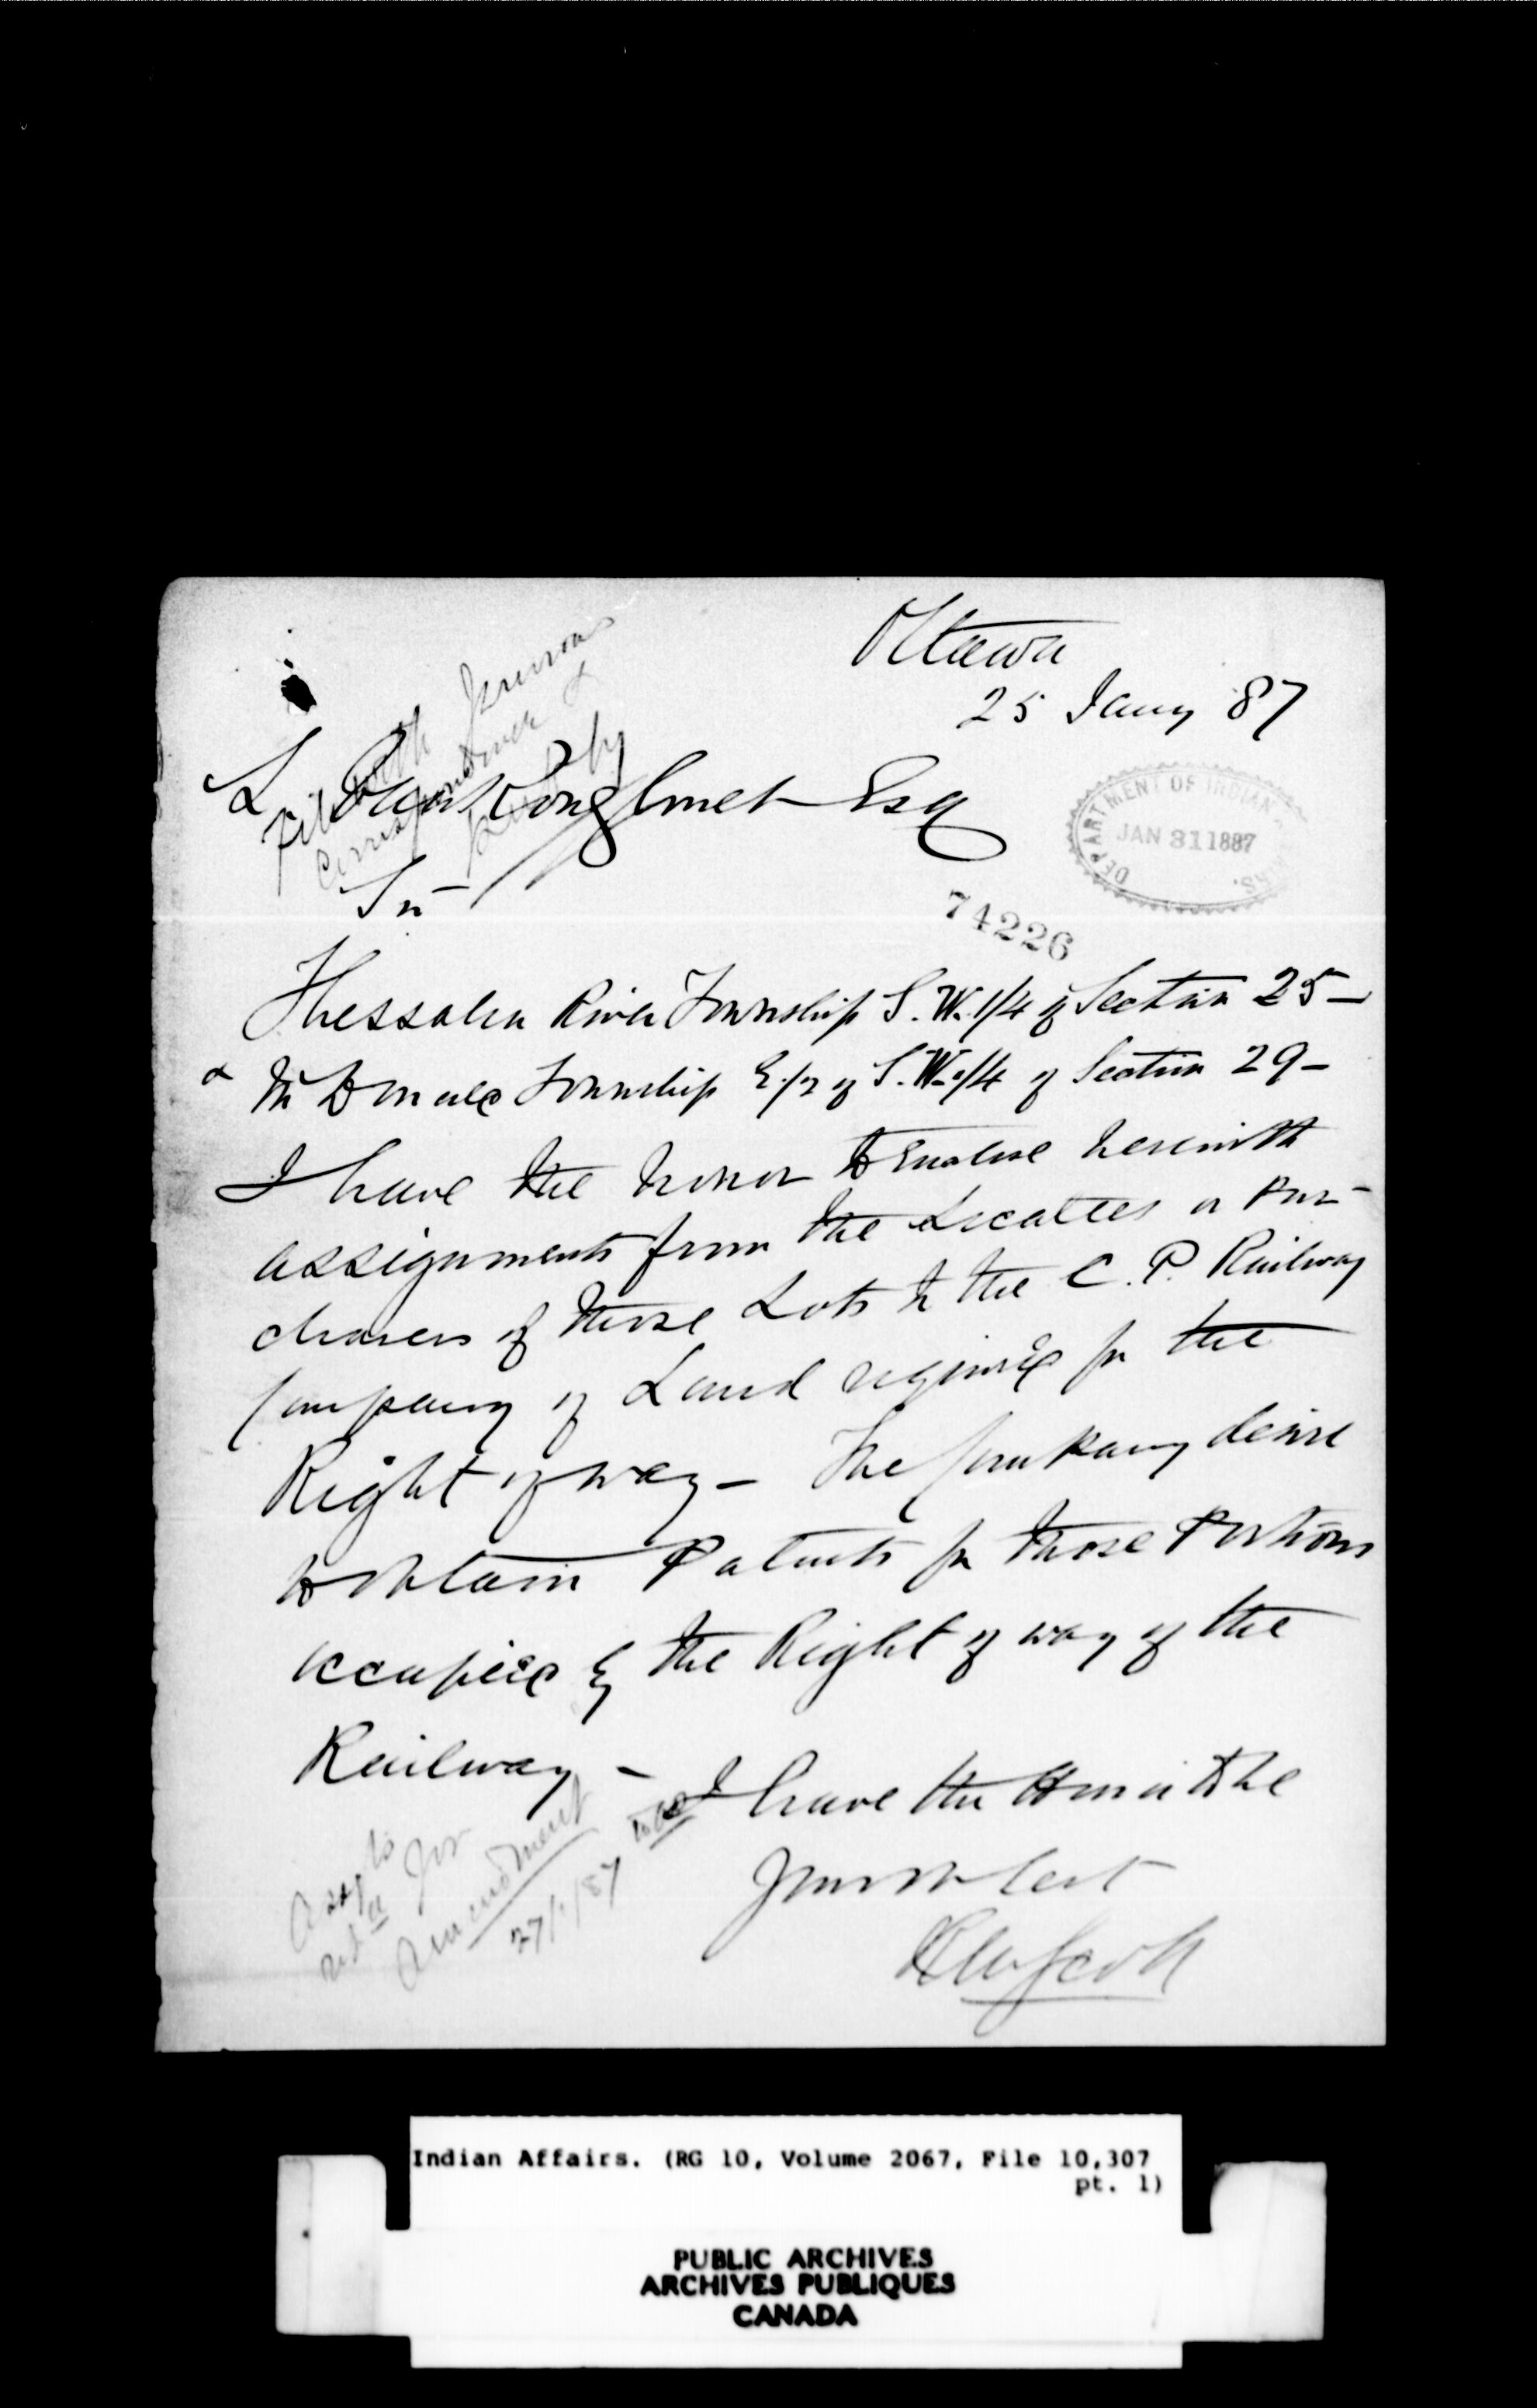 Ottawa
25 Jany 87
File with previous
correspondence &
reply
L. VanKoughnet Esq
Sir
DEPARTMENT OF INDIAN AFFAIRS.
JAN 31 1887
74226
Thessalon River Township S.W. 1/4 of Section 25 –
& McDonald Township E 1/2 of S.W. 1/4 of Section 29 –
I have the honor to enclose herewith
assignments from the Locatees or Pur-
chasers of those Lots to the C. P. Railway
Company of Land required for the
Right of way – The Company desire
to obtain Patents for those Portions
occupied by the Right of way of the
Railway –
I have the Honor to be
Your ob Servt
RWScott
Assgts
retd for
amendment
27/1/87
Indian Affairs. (RG 10, Volume 2067, File 10,307
pt. 1)
PUBLIC ARCHIVES
ARCHIVES PUBLIQUES
CANADA